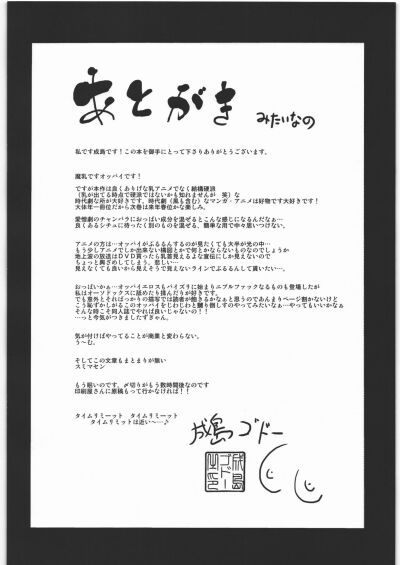 あとがき みたいなの
私です成島です！この本を御手にとって下さりありがとうございます。
魔乳ですオッパイです！
ですが本作は良くありげな乳アニメでなく結構硬派
（乳が出てる時点で硬派ではないかも知れませんが　笑）な
時代劇な所が大好きです。時代劇（風も含む）なマンガ・アニメは好物です大好きです！
大体年一冊位だから次巻は来年春位かな楽しみ。
愛憎劇のチャンバラにおっぱい成分を混ぜるとこんな感じになるんだなぁ…
良くあるシチュに待ったく別のものを混ぜる、簡単な用で中々思いつけない。
アニメの方は…オッパイがぶるるんするのが見たくても大半が光の中…
もう少しアニメでしか出来ない構図とかで何とかならないものなのでしょうか
地上波の放送はＤＶＤ買ったら乳首見えるよな宣伝にしか見えないので
ちょっと興ざめしてしまう。悲しい…
見えなくても良いから見えそうで見えないラインでぶるんして貰いたい…。
おっぱいかぁ…オッパイエロスもパイズリに始まりニプルファックなるものも登場したが
私はオーソドックスに舐めたり揉んだりが好きです。
でも意外とそればっかりの描写では読者が飽きるかなぁと思うのであんまりページ割かないけど
こう恥ずかしがるこのオッパイをじわじわと嬲り倒しするのやってみたいなぁ…やってもいいかなぁ
そんな時こそ同人誌でやれば良いじゃないの！！
…っと今気がつきましたすずちゃん。
気が付けばやってることが商業と変わらない。
う～む。
そしてこの文章もまとまりが無い
スミマセン
もう眠いのです。〆切りがもう数時間後なのです
印刷屋さんに原稿もって行かなければ！！
タイムリミーット　タイムリミーット
タイムリミットは近い～…♪
成島ゴドー
成島
ゴドー
之印